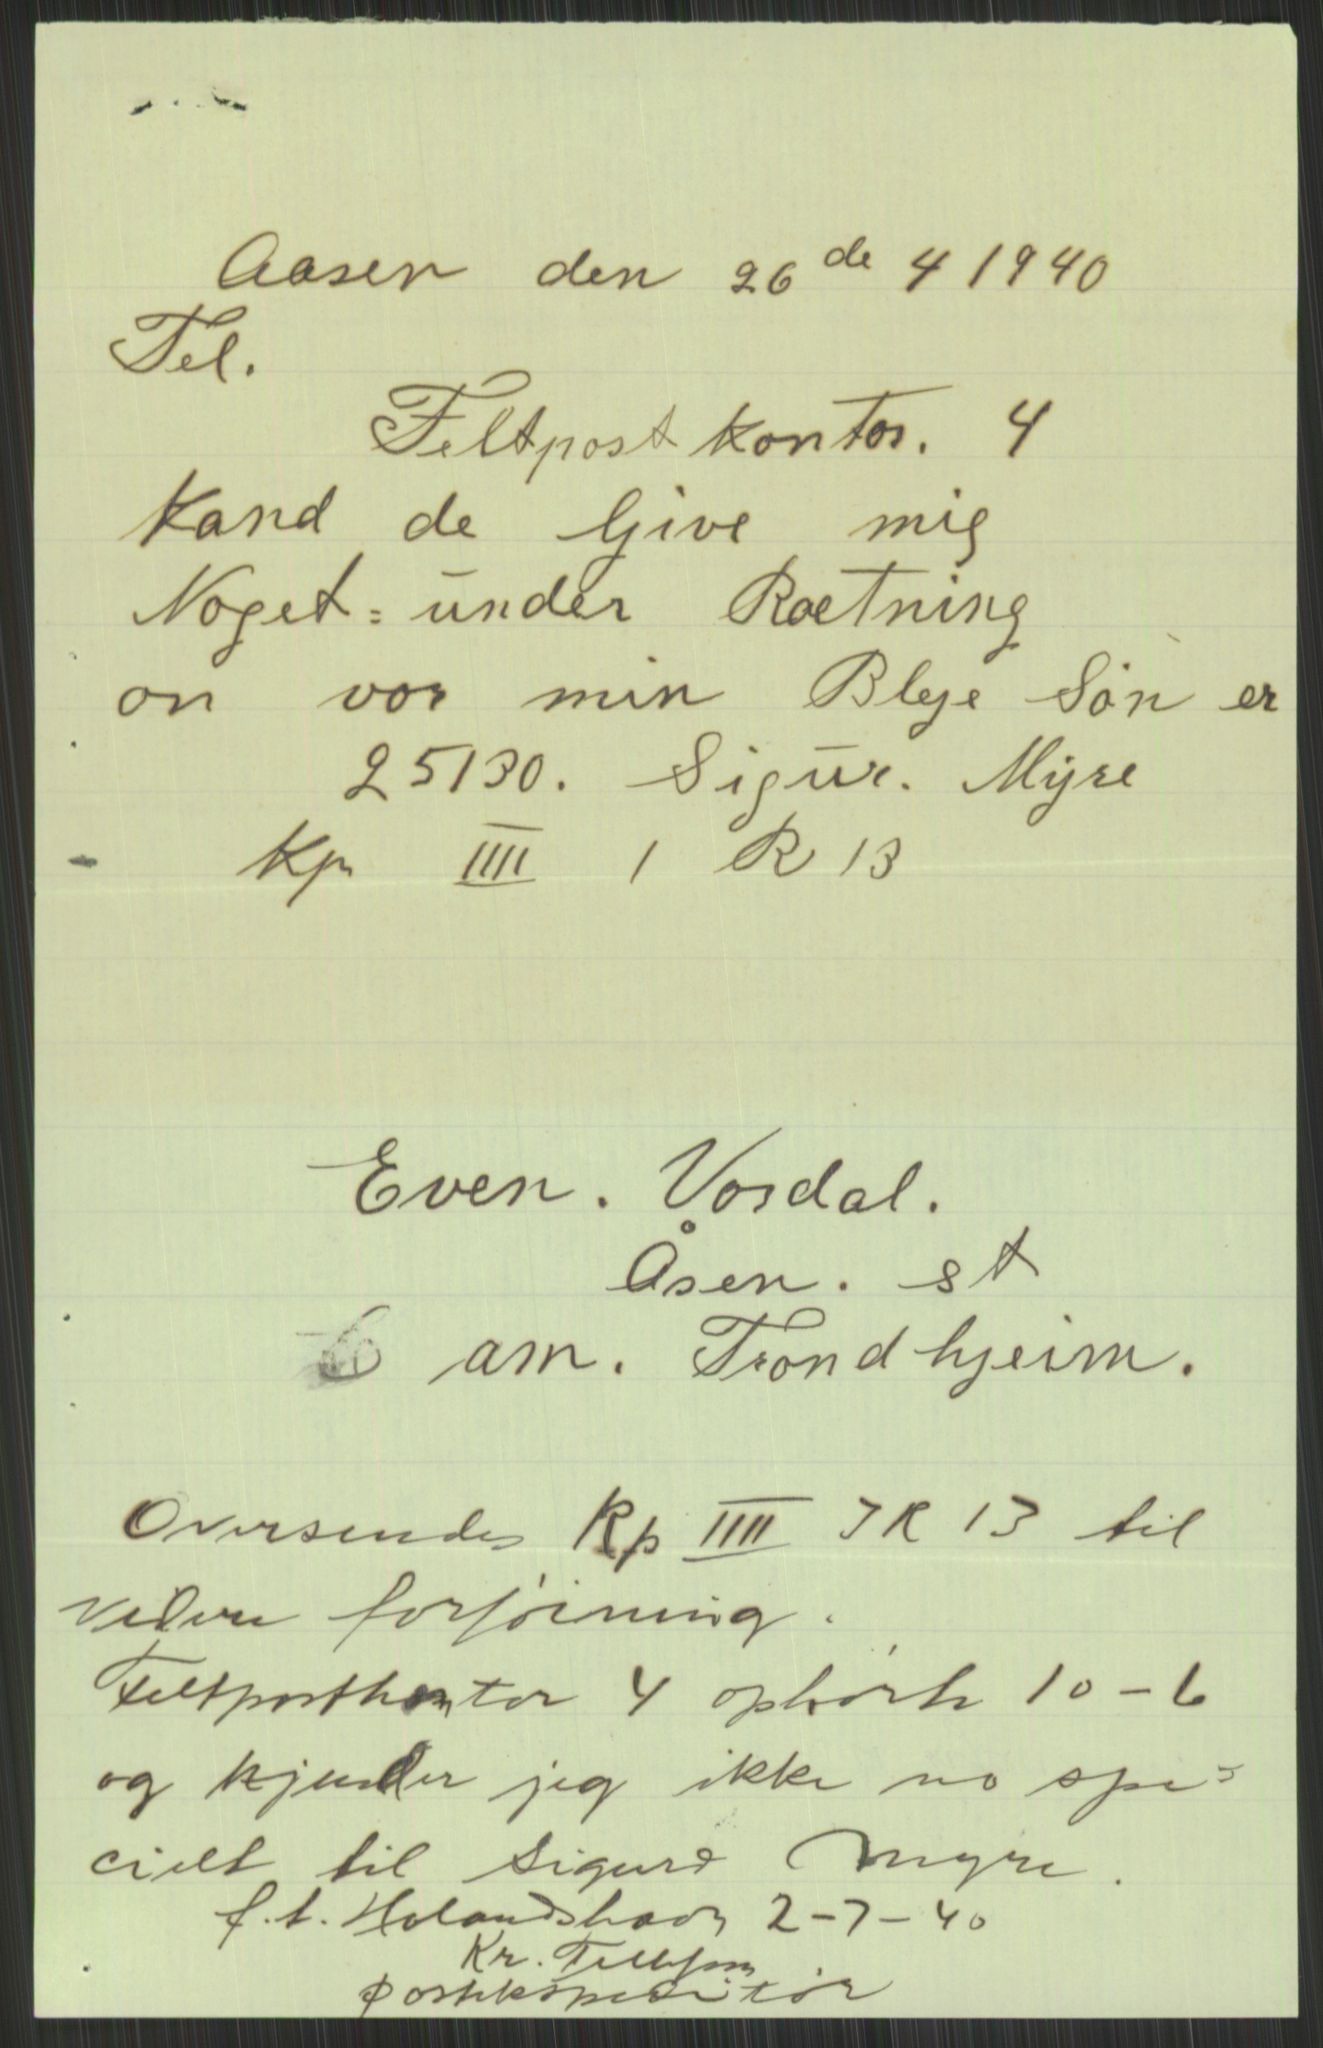 Aasen den 26de 4 1940
Tel.
Feltpostkontor. 4
Kand de Give mig
Noget = under Raetning
on vor min Bleje Sön er
25130. Sigur. Myre
Kp IIII I R 13
Even. Vordal.
Åsen. st
am. Trondhjeim.
Oversendes Kp IIII IR 13 til
videre forföining.
Feltpostkontor 4 ophörte 10-6
og kjender jeg ikke no spe=
cielt til Sigurd Myre.
f.t. Holandshavn 2-7-40
Kr. Tellefsen
postekspeditör